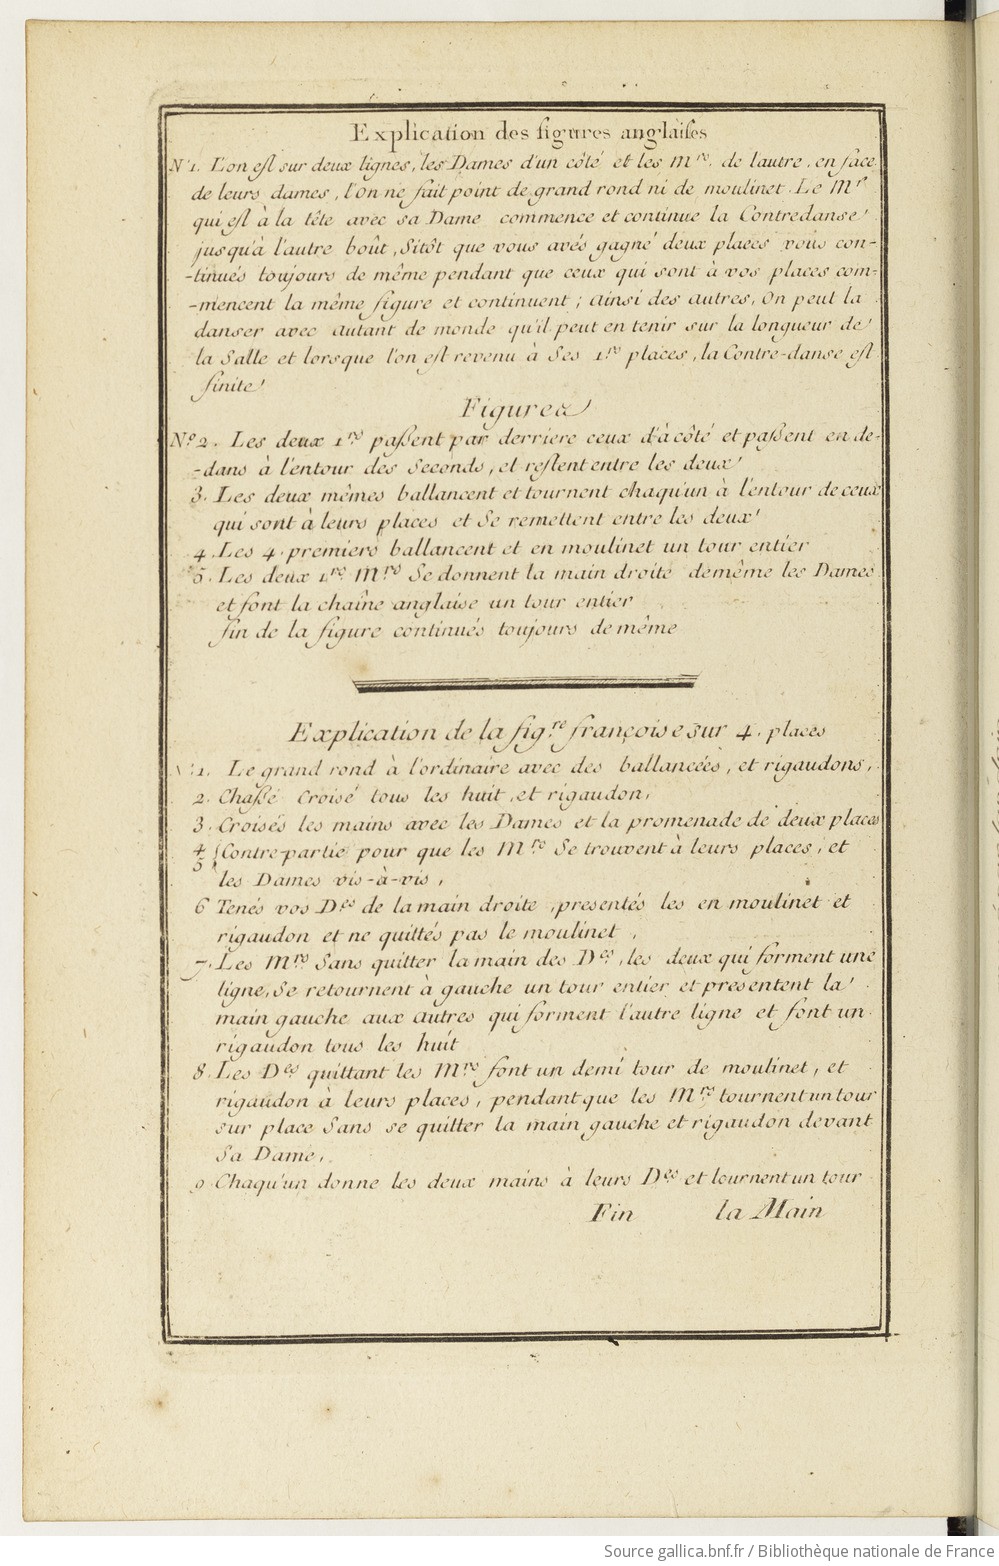 Explication des figures anglaises
N°1. L'on est sur deux lignes, les Dames d'un côté et les Mrs. de l'autre, en face
de leurs dames, l'on ne fait point de grand rond ni de moulinet. Le Mr
qui est à la tête avec sa Dame commence et continue la Contredanse
jusqu'à l'autre boût, Sitôt que vous avés gagné deux places vous con-
-tinués toujours de même pendant que ceux qui sont à vos places com-
-mencent la même figure et continuent ; ainsi des autres, On peut la
danser avec autant de monde qu'il peut en tenir sur la longueur de
la Salle et lorsque l'on est revenu à Ses 1res places, la Contre-danse est
finite
Figures
N°2. Les deux 1rs paßent par derriere ceux d'à côté et paßent en de-
-dans à l'entour des Seconds, et restent entre les deux
3. Les deux mêmes ballancent et tournent chaqu'un à l'entour de ceux
qui sont à leurs places et Se remettent entre les deux
4. Les 4. premiers ballancent et en moulinet un tour entier
5. Les deux 1rs Mrs Se donnent la main droite de même les Dames
et font la chaîne anglaise un tour entier
fin de la figure continués toujours de même
Explication de la figre françoise sur 4. places
N°1. Le grand rond à l'ordinaire avec des ballancées, et rigaudons,
2. Chaßé Croisé tous les huit, et rigaudon,
3. Croisés les mains avec les Dames et la promenade de deux places
4
5 Contre-partie pour que les Mrs Se trouvent à leurs places, et
les Dames vis-à-vis,
6 Tenés vos Des de la main droite, presentés les en moulinet et
rigaudon et ne quittés pas le moulinet,
7. Les Mrs Sans quitter la main des Des, les deux qui forment une
ligne, Se retournent à gauche un tour entier et presentent la
main gauche aux autres qui forment l'autre ligne et font un
rigaudon tous les huit
8. Les Des quittant les Mrs font un demi tour de moulinet, et
rigaudon à leurs places, pendant que les Mrs tournent un tour
sur place Sans se quitter la main gauche et rigaudon devant
Sa Dame,
9. Chaqu'un donne les deux mains à leurs Des et tournent un tour
Fin la Main
Source gallica.bnf.fr / Bibliothèque nationale de France